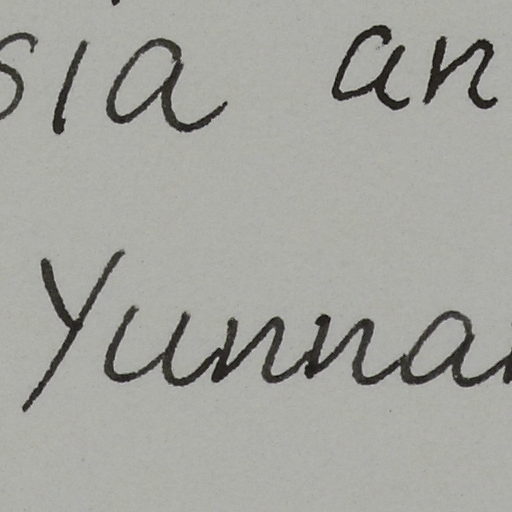 sia an
Yunnan